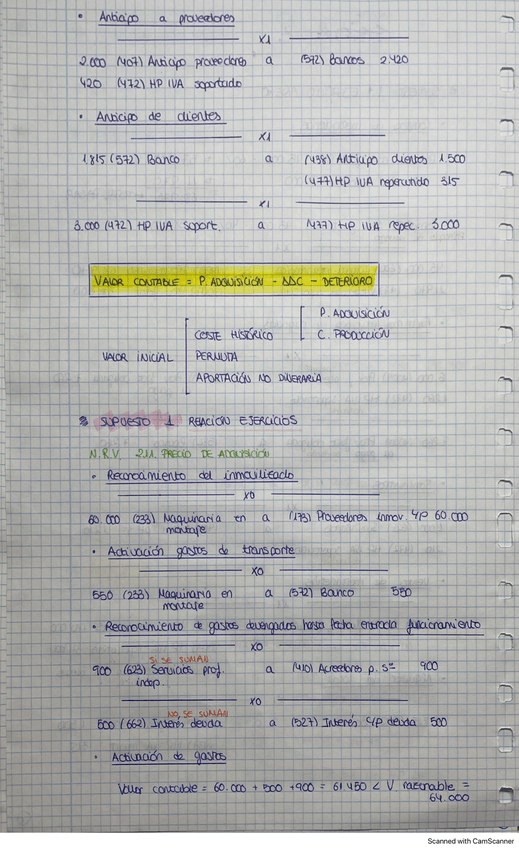 • Anticipo a proveedores
X1
2.000 (407) Anticipo proveedores a (572) Bancos 2.420
420 (472) HP IVA soportado
• Anticipo de clientes
X1
1.815 (572) Banco a (438) Anticipo clientes 1.500
(477) HP IVA repercutido 315
X1
3.000 (472) HP IVA soport. a (477) HP IVA reperc. 3.000
VALOR CONTABLE = P. ADQUISICIÓN - AAC - DETERIORO
P. ADQUISICIÓN
COSTE HISTÓRICO C. PRODUCCIÓN
VALOR INICIAL PERMUTA
APORTACIÓN NO DINERARIA
SUPUESTO 1 RELACIÓN EJERCICIOS
N.R.V. 2ª.1. PRECIO DE ADQUISICIÓN
• Reconocimiento del inmovilizado
X0
60.000 (233) Maquinaria en a (173) Proveedores inmov. 60.000
montaje
• Activación gastos de transporte
X0
550 (233) Maquinaria en a (572) Banco 550
montaje
• Reconocimiento de gastos devengados hasta fecha entrada funcionamiento
X0
SI SE SUMAN
900 (623) Servicios prof. a (410) Acreedores p. 900
indep.
X0
NO SE SUMAN
500 (662) Interés deuda a (527) Interés c/p deuda 500
• Activación de gastos
Valor contable = 60.000 + 500 + 900 = 61.450 < V razonable =
64.000
Scanned with CamScanner